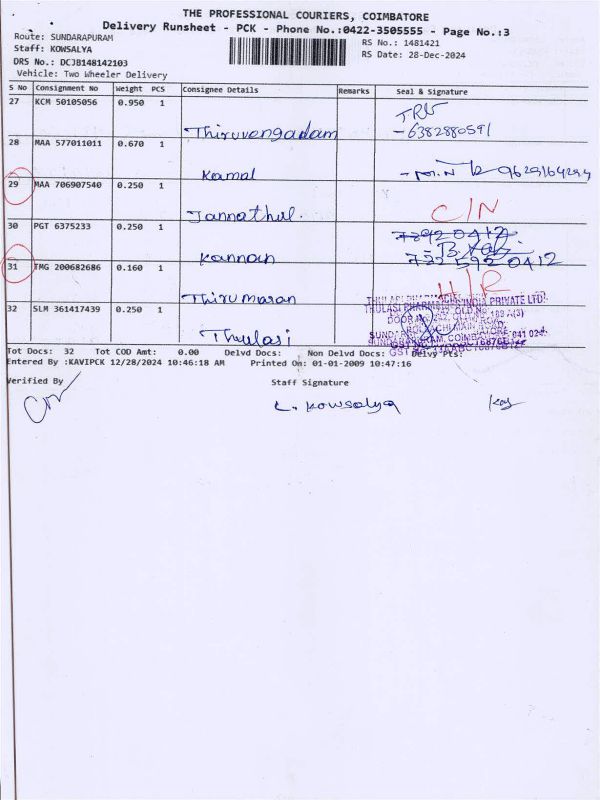 THE PROFESSIONAL COURIERS, COIMBATORE
Delivery Runsheet - PCK - Phone No.:0422-3505555 - Page No.:3
Route: SUNDARAPURAM
RS No.: 1481421
Staff: KOWSALYA
RS Date: 28-Dec-2024
DRS No.: DCJB148142103
Vehicle: Two Wheeler Delivery
S No Consignment No Weight PCS Consignee Details Remarks Seal & Signature
27 KCM 50105056 0.950 1
TRV
Thiruvengadam -6382880591
28 MAA 577011011 0.670 1
Kamal 9629164294
29 MAA 706907540 0.250 1
Jannathul. C/N
30 PGT 6375233 0.250 1
Kannan
31 TMG 200682686 0.160 1
Thirumaran H/R
32 SLM 361417439 0.250 1
THULASI PHARMACIES INDIA PRIVATE LTD.
Thulasi
Tot Docs: 32 Tot COD Amt: 0.00 Delvd Docs: Non Delvd Docs: Delvy Pts:
Entered By :KAVIPCK 12/28/2024 10:46:18 AM Printed On: 01-01-2009 10:47:16
Verified By Staff Signature
L. Kowsalya